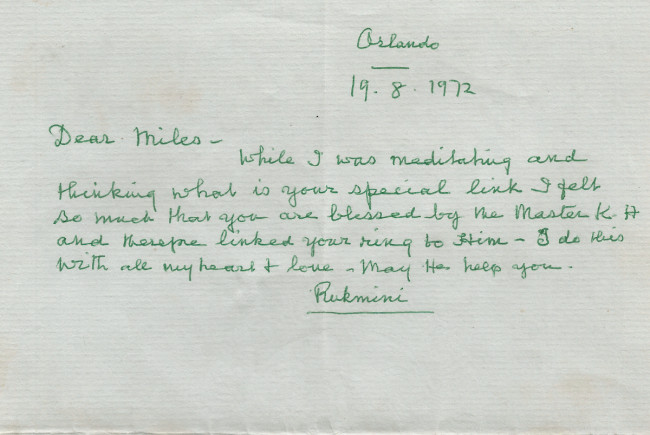 Orlando
19. 8. 1972
Dear Miles –
While I was meditating and
thinking what is your special link I felt
so much that you are blessed by the Master K. H
and therefore linked your ring to Him – I do this
with all my heart & love – May He help you.
Rukmini